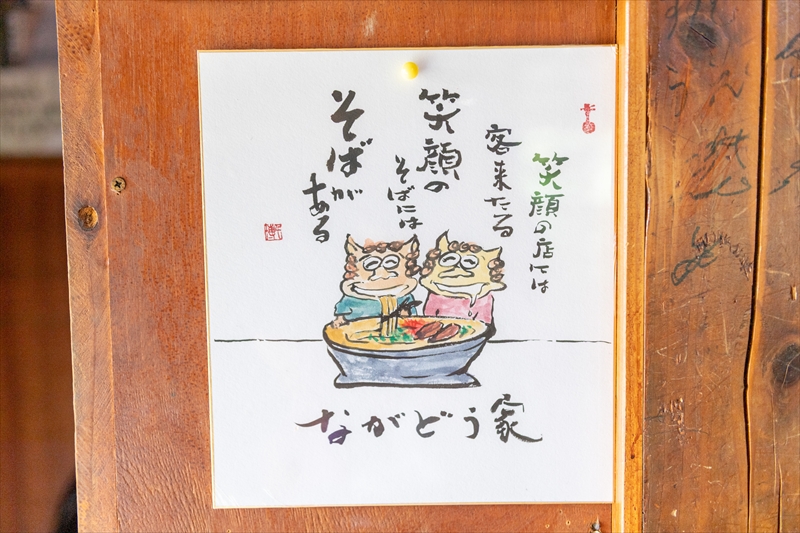 笑顔の店には
客来たる
笑顔の
そばには
そばが
ある
ながどう家